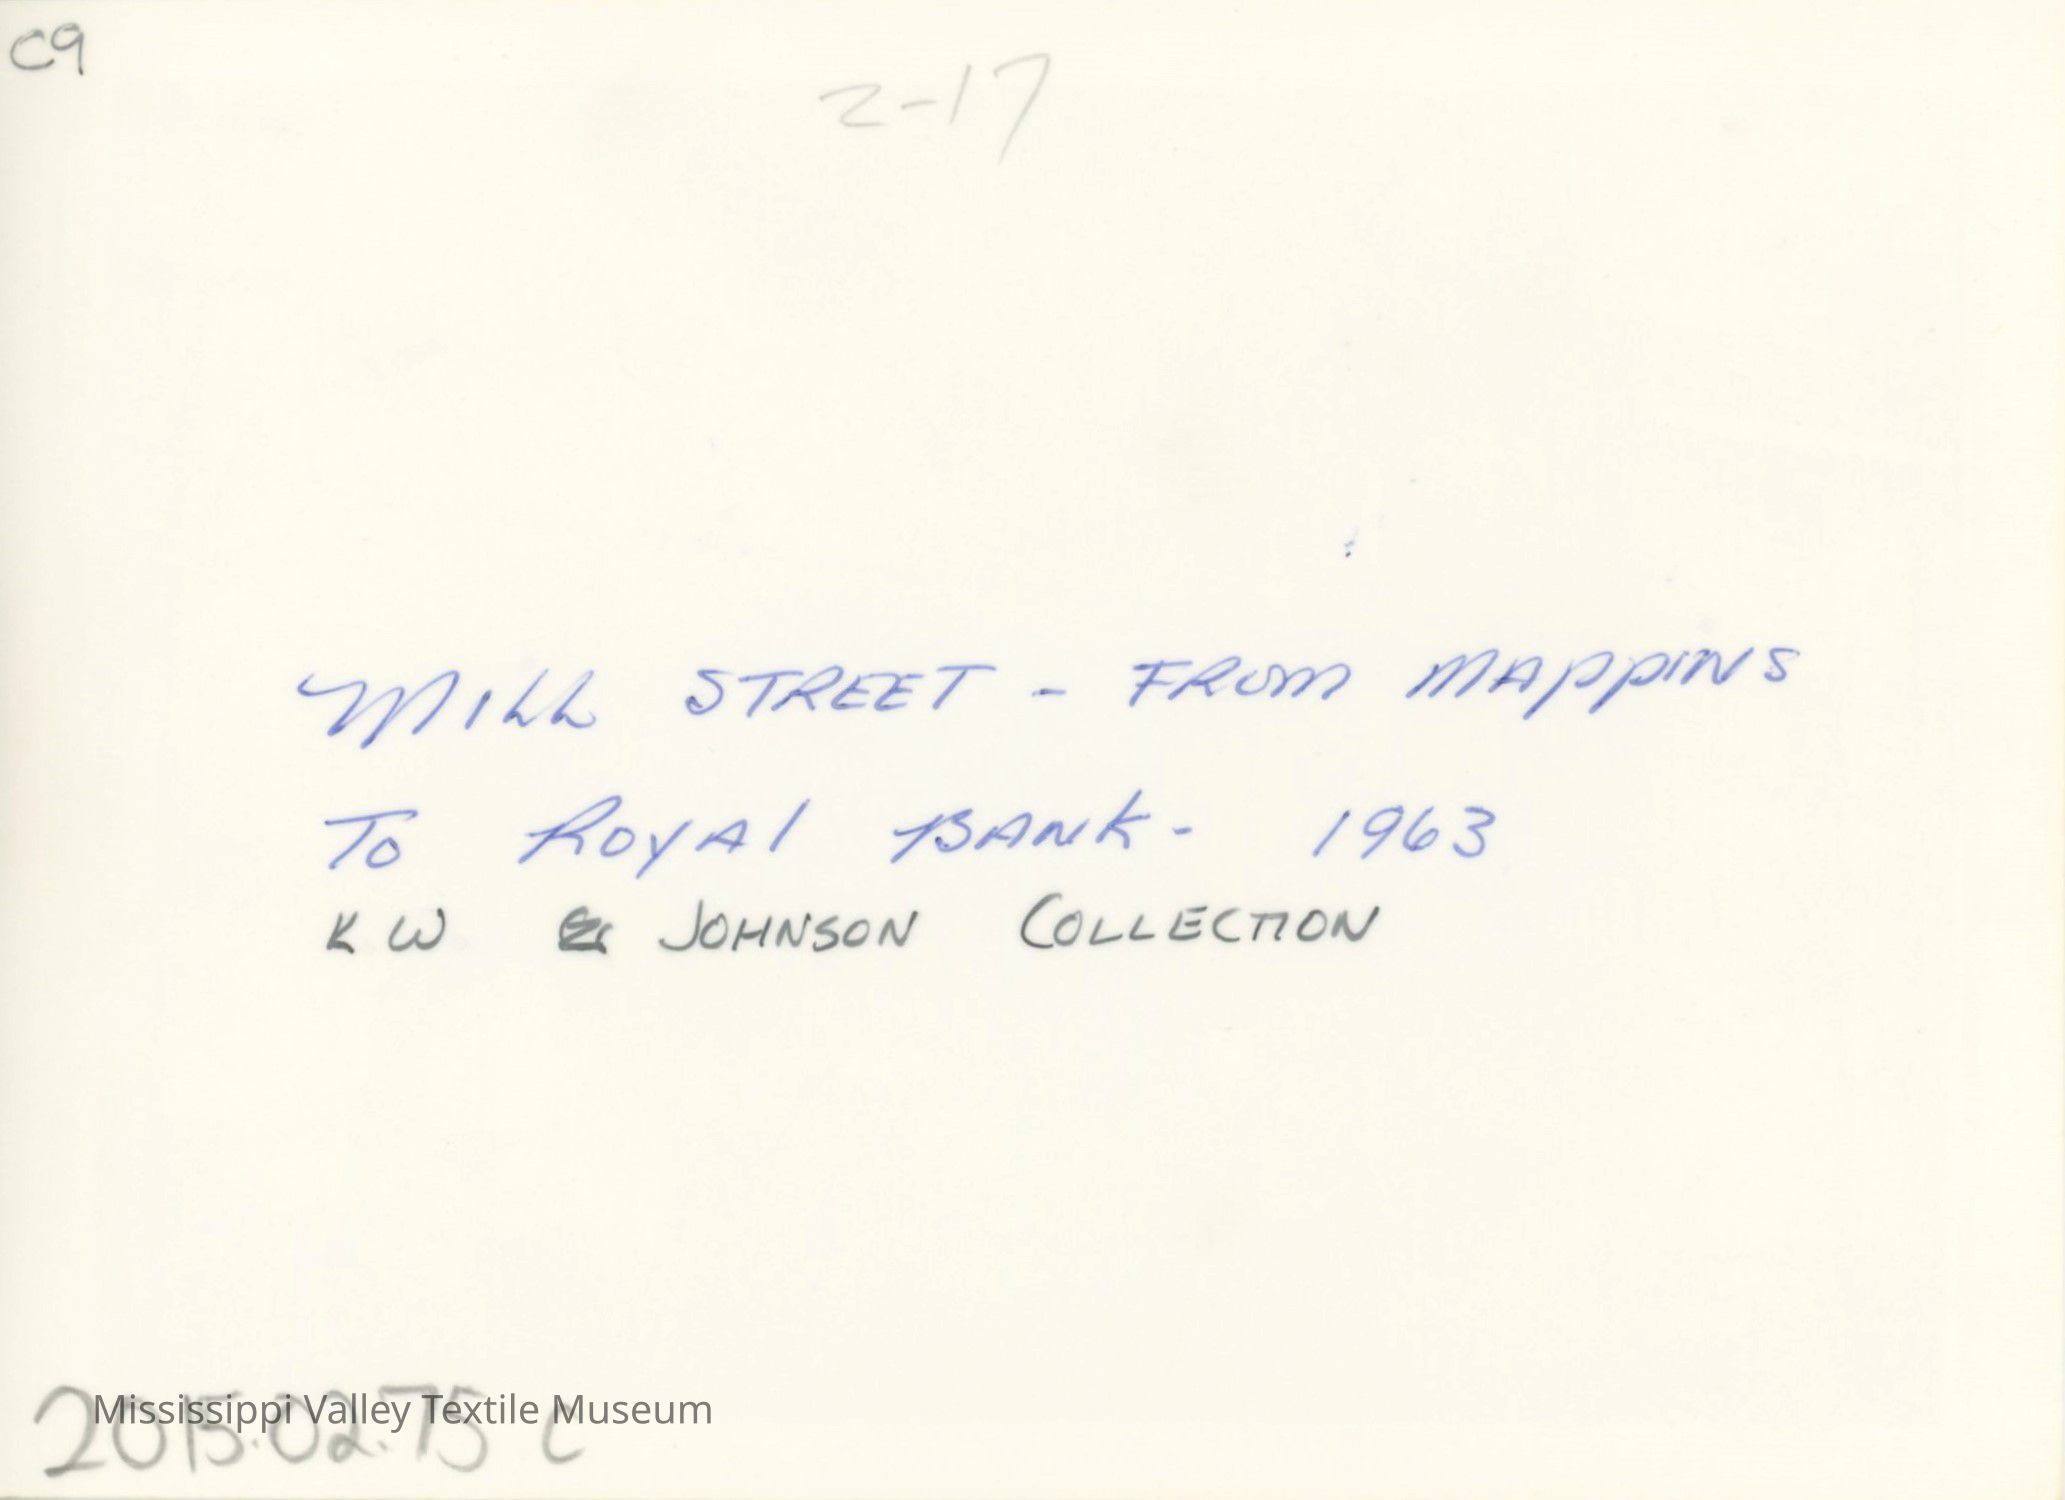 C9
2-17
MILL STREET - FROM MAPPINS
TO ROYAL BANK - 1963
KW & JOHNSON COLLECTION
Mississippi Valley Textile Museum
2015.02.75 C